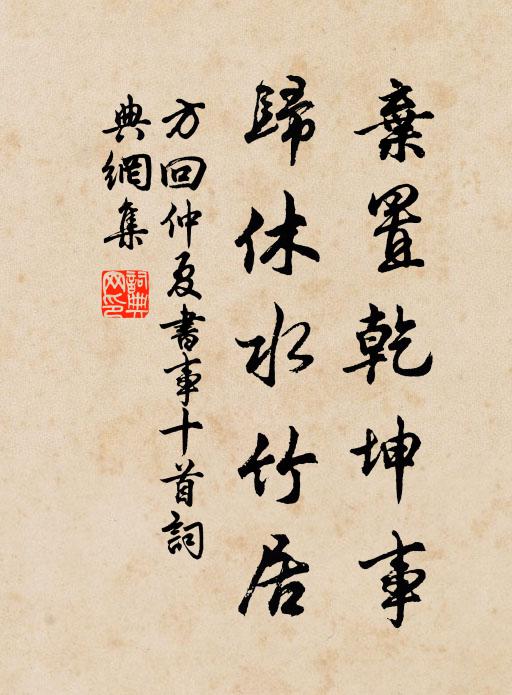 棄置乾坤事
歸休水竹居
方回仲夏書事十首詞
典網集
詞典网印